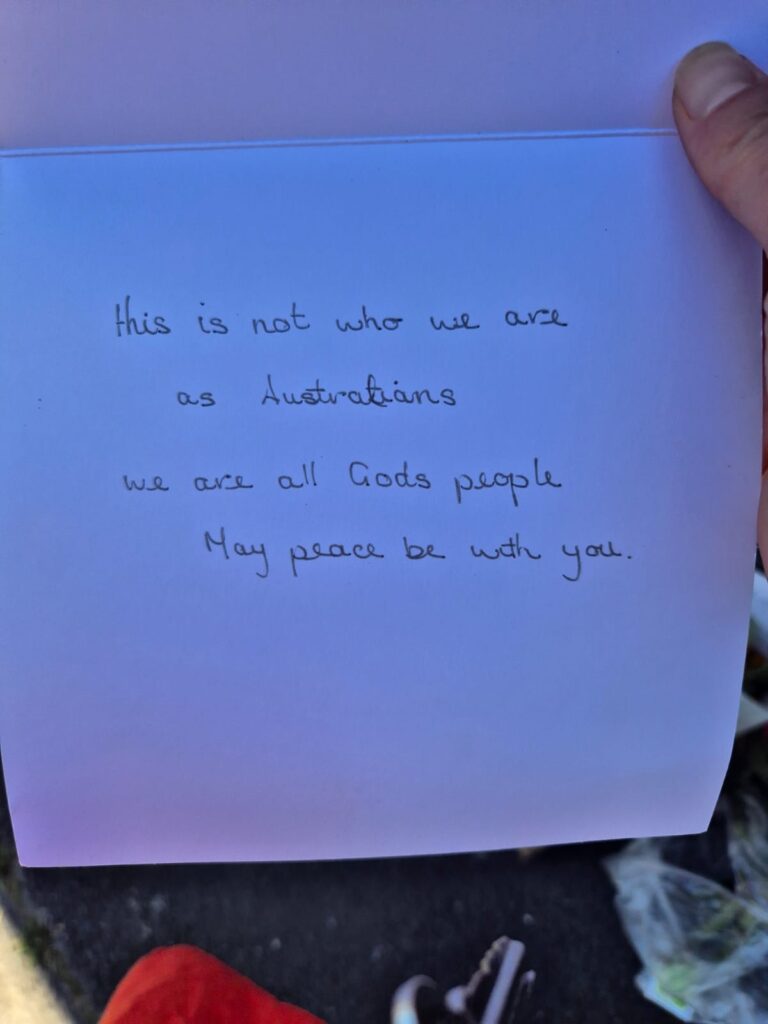 this is not who we are
as Australians
we are all Gods people
May peace be with you.